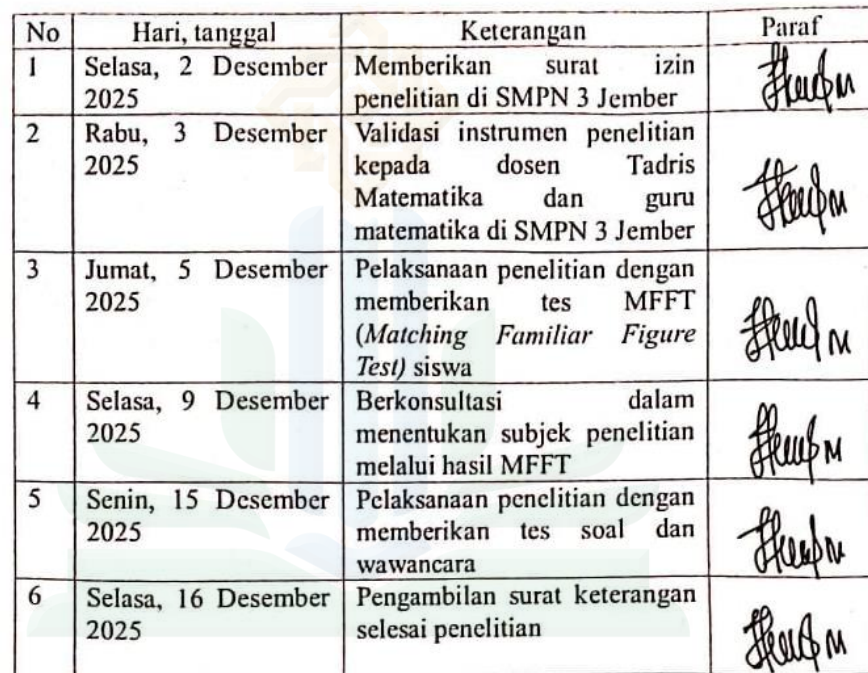 No Hari, tanggal Keterangan Paraf
1 Selasa, 2 Desember Memberikan surat izin
2025 penelitian di SMPN 3 Jember
2 Rabu, 3 Desember Validasi instrumen penelitian
2025 kepada dosen Tadris
Matematika dan guru
matematika di SMPN 3 Jember
3 Jumat, 5 Desember Pelaksanaan penelitian dengan
2025 memberikan tes MFFT
(Matching Familiar Figure
Test) siswa
4 Selasa, 9 Desember Berkonsultasi dalam
2025 menentukan subjek penelitian
melalui hasil MFFT
5 Senin, 15 Desember Pelaksanaan penelitian dengan
2025 memberikan tes soal dan
wawancara
6 Selasa, 16 Desember Pengambilan surat keterangan
2025 selesai penelitian